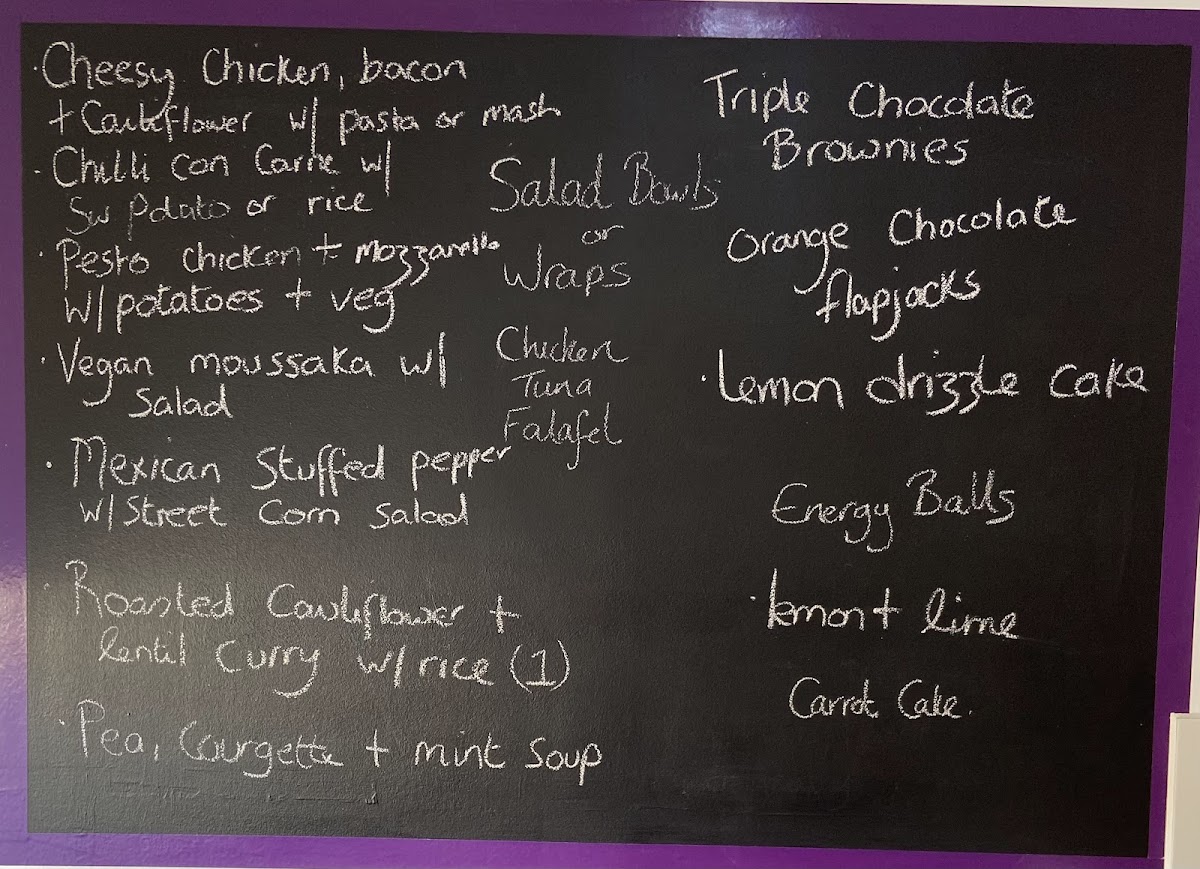 · Cheesy Chicken, bacon
+ Cauliflower w/ pasta or mash
· Chilli con Carne w/
Sw Potato or rice
· Pesto chicken + Mozzarella
w/ potatoes + veg
· Vegan moussaka w/
Salad
· Mexican Stuffed pepper
w/ Street Corn Salad
· Roasted Cauliflower +
lentil Curry w/ rice (1)
· Pea, Courgette + mint Soup
Salad Bowls
or
Wraps
Chicken
Tuna
Falafel
Triple Chocolate
Brownies
Orange Chocolate
flapjacks
· Lemon drizzle cake
Energy Balls
· lemon + lime
Carrot Cake.